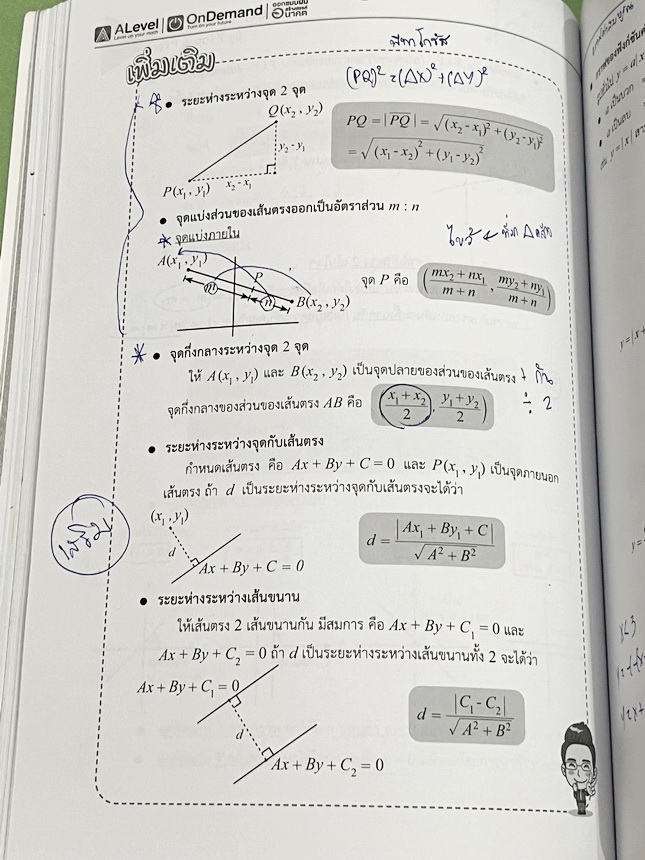 ALevel
Level up your math
OnDemand
Turn on your future
ออกแบบฝัน
สร้างสรรค์
อนาคต
พีทาโกรัส
(PQ)² = (ΔX)² + (ΔY)²
เพิ่มเติม
• ระยะห่างระหว่างจุด 2 จุด
Q(x₂, y₂)
y₂ - y₁
P(x₁, y₁)
x₂ - x₁
PQ = |PQ| = √((x₂ - x₁)² + (y₂ - y₁)²)
= √((x₁ - x₂)² + (y₁ - y₂)²)
• จุดแบ่งส่วนของเส้นตรงออกเป็นอัตราส่วน m : n
จุดแบ่งภายใน
A(x₁, y₁)
P
m
n
B(x₂, y₂)
จุด P คือ ((mx₂ + nx₁)/(m + n), (my₂ + ny₁)/(m + n))
• จุดกึ่งกลางระหว่างจุด 2 จุด
ให้ A(x₁, y₁) และ B(x₂, y₂) เป็นจุดปลายของส่วนของเส้นตรง
+ กัน
÷ 2
จุดกึ่งกลางของส่วนของเส้นตรง AB คือ ((x₁ + x₂)/2, (y₁ + y₂)/2)
• ระยะห่างระหว่างจุดกับเส้นตรง
กำหนดเส้นตรง คือ Ax + By + C = 0 และ P(x₁, y₁) เป็นจุดภายนอก
เส้นตรง ถ้า d เป็นระยะห่างระหว่างจุดกับเส้นตรงจะได้ว่า
(x₁, y₁)
d
Ax + By + C = 0
d = |Ax₁ + By₁ + C| / √(A² + B²)
• ระยะห่างระหว่างเส้นขนาน
ให้เส้นตรง 2 เส้นขนานกัน มีสมการ คือ Ax + By + C₁ = 0 และ
Ax + By + C₂ = 0 ถ้า d เป็นระยะห่างระหว่างเส้นขนานทั้ง 2 จะได้ว่า
Ax + By + C₁ = 0
d
Ax + By + C₂ = 0
d = |C₁ - C₂| / √(A² + B²)